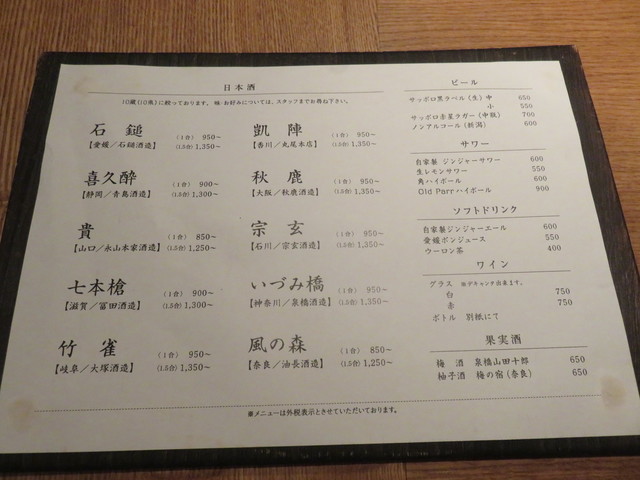 日本酒
10蔵(10魚)に絞っております。味・お好みについては、スタッフまでお尋ね下さい。
石鎚 (1合) 950~
【愛媛/石鎚酒造】 (1.5合) 1,350~
喜久酔 (1合) 900~
【静岡/青島酒造】 (1.5合) 1,300~
貴 (1合) 850~
【山口/永山本家酒造】 (1.5合) 1,250~
七本槍 (1合) 900~
【滋賀/冨田酒造】 (1.5合) 1,300~
竹雀 (1合) 950~
【岐阜/大塚酒造】 (1.5合) 1,350~
凱陣 (1合) 950~
【香川/丸尾本店】 (1.5合) 1,350~
秋鹿 (1合) 950~
【大阪/秋鹿酒造】 (1.5合) 1,350~
宗玄 (1合) 950~
【石川/宗玄酒造】 (1.5合) 1,350~
いづみ橋 (1合) 950~
【神奈川/泉橋酒造】 (1.5合) 1,350~
風の森 (1合) 850~
【奈良/油長酒造】 (1.5合) 1,250~
ビール
サッポロ黒ラベル(生) 中 650
小 550
サッポロ赤星ラガー(中瓶) 700
ノンアルコール(新潟) 600
サワー
自家製 ジンジャーサワー 600
生レモンサワー 550
角ハイボール 600
Old Parrハイボール 900
ソフトドリンク
自家製ジンジャーエール 600
愛媛ポンジュース 550
ウーロン茶 400
ワイン
グラス ※デキャンタ出来ます。
白 750
赤 750
ボトル 別紙にて
果実酒
梅酒 泉橋山田十郎 650
柚子酒 梅の宿(奈良) 650
※メニューは外税表示とさせていただいております。